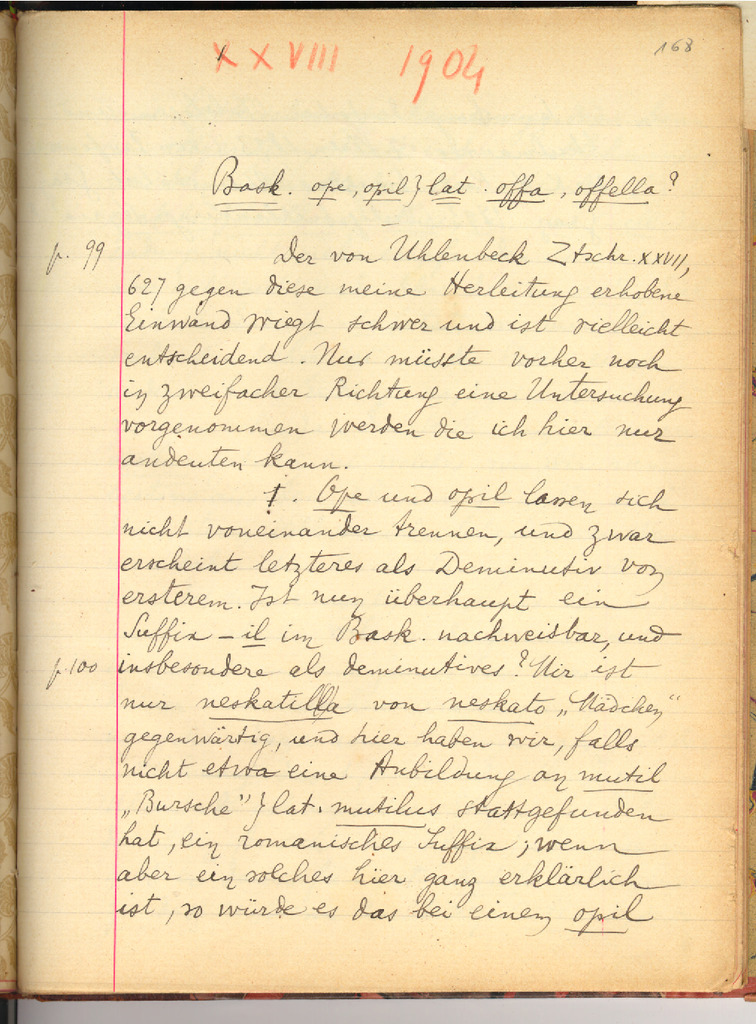 168
XXVIII 1904
Bask. ope, opil } lat. offa, offella?
p. 99
Der von Uhlenbeck Ztschr. XXVII,
627 gegen diese meine Herleitung erhobene
Einwand wiegt schwer und ist vielleicht
entscheidend. Nur müsste vorher noch
in zweifacher Richtung eine Untersuchung
vorgenommen werden die ich hier nur
andeuten kann.
1. Ope und opil lassen sich
nicht voneinander trennen, und zwar
erscheint letzteres als Deminutiv von
ersterem. Ist nun überhaupt ein
Suffix -il im Bask. nachweisbar, und
p. 100
insbesondere als deminutives? Mir ist
nur neskatilla von neskato „Mädchen“
gegenwärtig, und hier haben wir, falls
nicht etwa eine Anbildung an mutil
„Bursche“ } lat. mutilus stattgefunden
hat, ein romanisches Suffix; wenn
aber ein solches hier ganz erklärlich
ist, so würde es das bei einem opil